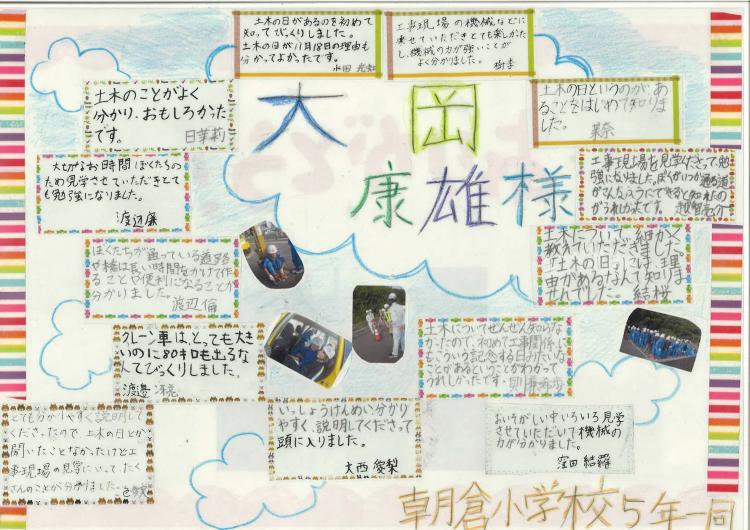 土木の日があるのを初めて
知ってびっくりしました。
土木の日が11月18日の理由も
分かってよかったです。
工事現場の機械などに
乗せていただきとても楽しかた
し、機械の力が強いことが
よく分かりました。
土木のことがよく
分かり、おもしろかった
です。
日茉莉
大岡
康雄様
土木の日というのが、あ
ることをはじめて知りま
した。
大切なお時間ぼくたちの
ため見学させていただきとて
も勉強になりました。
渡辺
工事現場を見学したさって勉
強になりました。ぼくがいつも通る道
ぼくたちが通っている道路
や橋は長い時間をかけて作
ることや便利になることが
分かりました。
渡辺 倫
土木について、細かく
教えていただきました。
「土木の日」にけ、理
由があるなんて知りま
せんでした。
結桜
クレーン車は、とっても大き
いのに80キロも出るな
んてびっくりしました。
渡邉
土木についてぜんぜん知らな
かったので、初めて工事関係に
もこういう記念する日みたいな
ことがあるということがわかって
うれしかったです。
とても分かりやすく説明して
くださったので、土木の日とか
聞いたことなかったけど工
事現場の見学にいってたく
さんのことが分かりました。
いっしょうけんめい分かり
やすく、説明してくださって
頭に入りました。
大西 愛梨
おいそがしい中いろいろ見学
させていただいて機械の
力が分かりました。
窪田 結羅
朝倉小学校5年一同